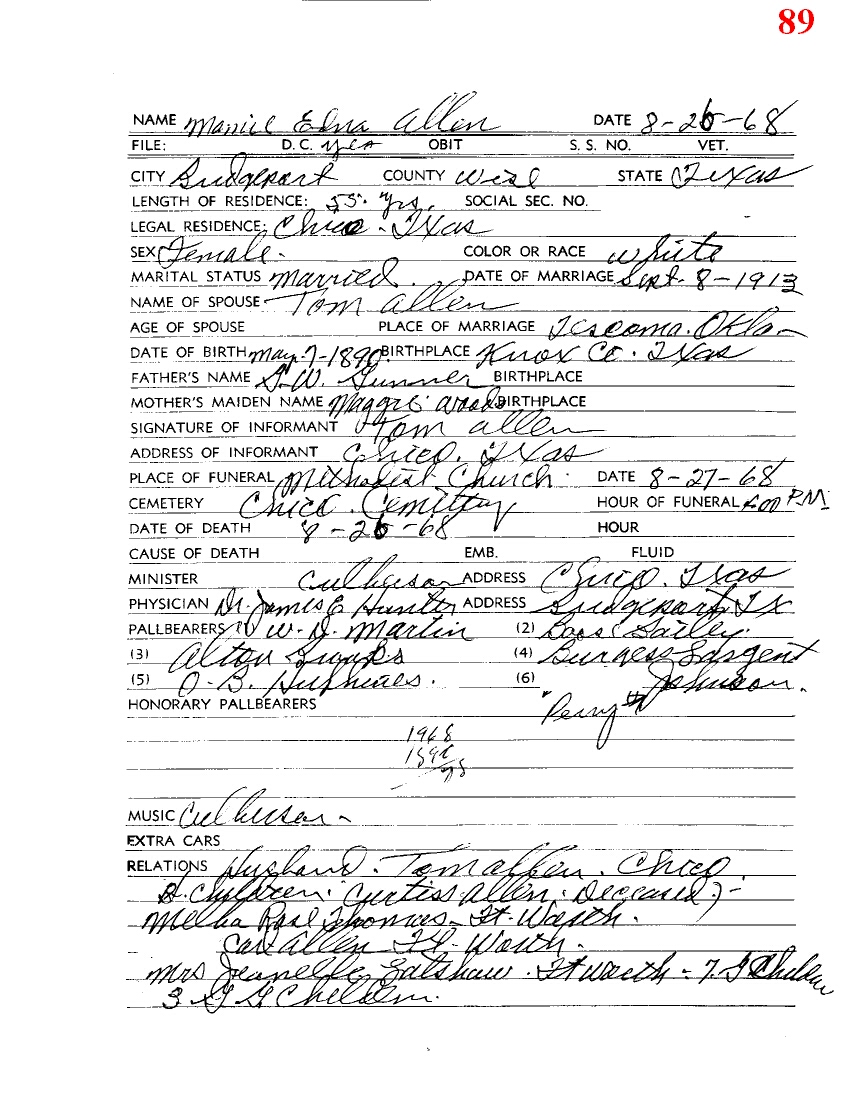 89
NAME Manie Edna Allen DATE 8-26-68
FILE: D. C. yes OBIT S. S. NO. VET.
CITY Bridgeport COUNTY Wise STATE Texas
LENGTH OF RESIDENCE: 55 yrs. SOCIAL SEC. NO.
LEGAL RESIDENCE: Chico - Texas
SEX Female - COLOR OR RACE white
MARITAL STATUS married. DATE OF MARRIAGE Sept. 8-1913
NAME OF SPOUSE Tom Allen
AGE OF SPOUSE PLACE OF MARRIAGE Okla-
DATE OF BIRTH may. 7-1890 BIRTHPLACE Knox Co. Texas
FATHER'S NAME BIRTHPLACE
MOTHER'S MAIDEN NAME Maggie Woods BIRTHPLACE
SIGNATURE OF INFORMANT Tom Allen
ADDRESS OF INFORMANT Chico, Texas
PLACE OF FUNERAL Methodist Church. DATE 8-27-68
CEMETERY Chico. Cemetery HOUR OF FUNERAL 4:00 P.M.
DATE OF DEATH 8-26-68 HOUR
CAUSE OF DEATH EMB. FLUID
MINISTER Culberson ADDRESS Chico. Texas
PHYSICIAN Dr. James E Hunter ADDRESS Bridgeport, Tx
PALLBEARERS (1) W. D. Martin (2)
(3) Alton (4) Burgess Sargent
(5) O-B. Hughes. (6) Perry Johnson.
HONORARY PALLBEARERS
1968
1890
78
MUSIC Culberson -
EXTRA CARS
RELATIONS Husband. Tom Allen. Chico
Children: Curtiss Allen. Deceased -
Melba Rose Thomas - Ft. Worth.
Carl Allen Ft. Worth.
Mrs Jeanelle Ft Worth - 7. G Children
3 G G Children.